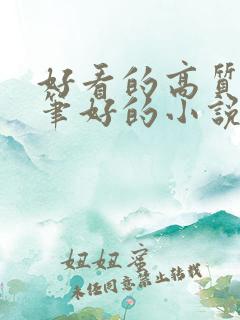 好看的高质
笔好的小说
妞妞蜜
未经同意禁止转载